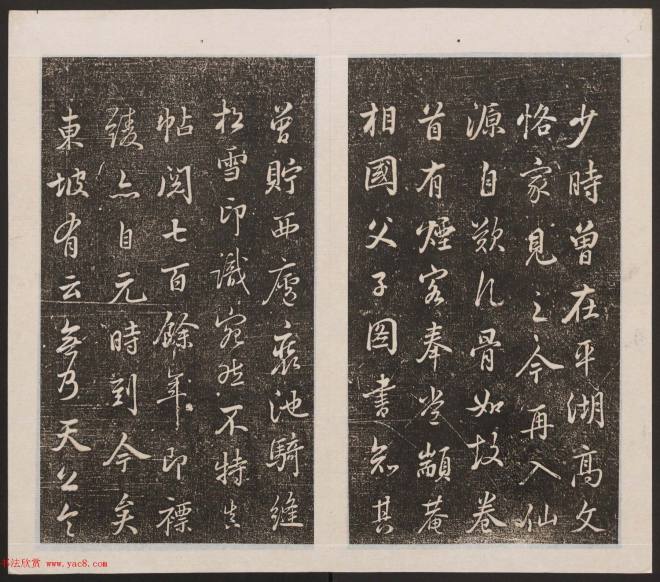 少時曾在平湖高文
恪家見之今再入仙
源自歎凡骨如故卷
首有煙客奉常顓菴
相國父子圖書知其
曾貯西廬池騎縫
松雪印識宛然不特真
帖閱七百餘年即褾
綾亦自元時到今矣
東坡有云無乃天公
书法欣赏 www.yac8.com